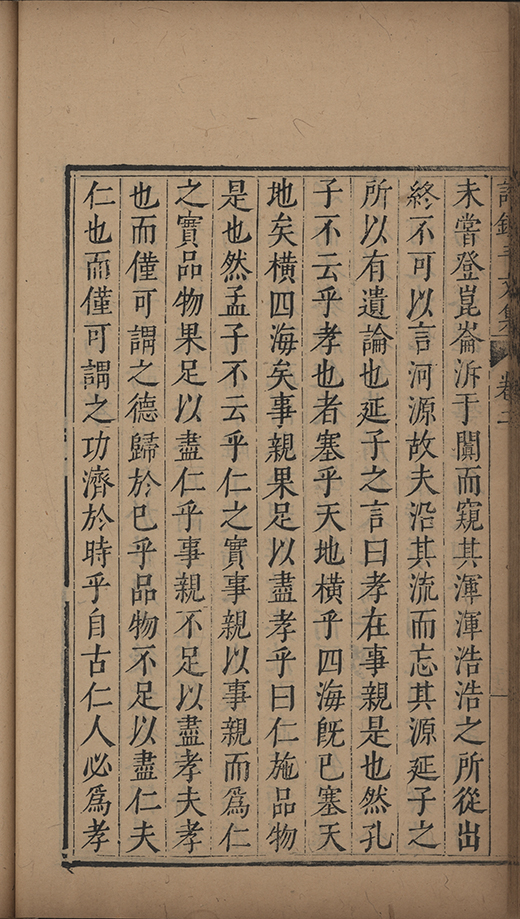 卷二
未嘗登崑崙泝于闐而窺其渾渾浩浩之所從出
終不可以言河源故夫沿其流而忘其源延子之
所以有遺論也延子之言曰孝在事親是也然孔
子不云乎孝也者塞乎天地橫乎四海既已塞天
地矣橫四海矣事親果足以盡孝乎曰仁施品物
是也然孟子不云乎仁之實事親以事親而爲仁
之實品物果足以盡仁乎事親不足以盡孝夫孝
也而僅可謂之德歸於己乎品物不足以盡仁夫
仁也而僅可謂之功濟於時乎自古仁人必爲孝